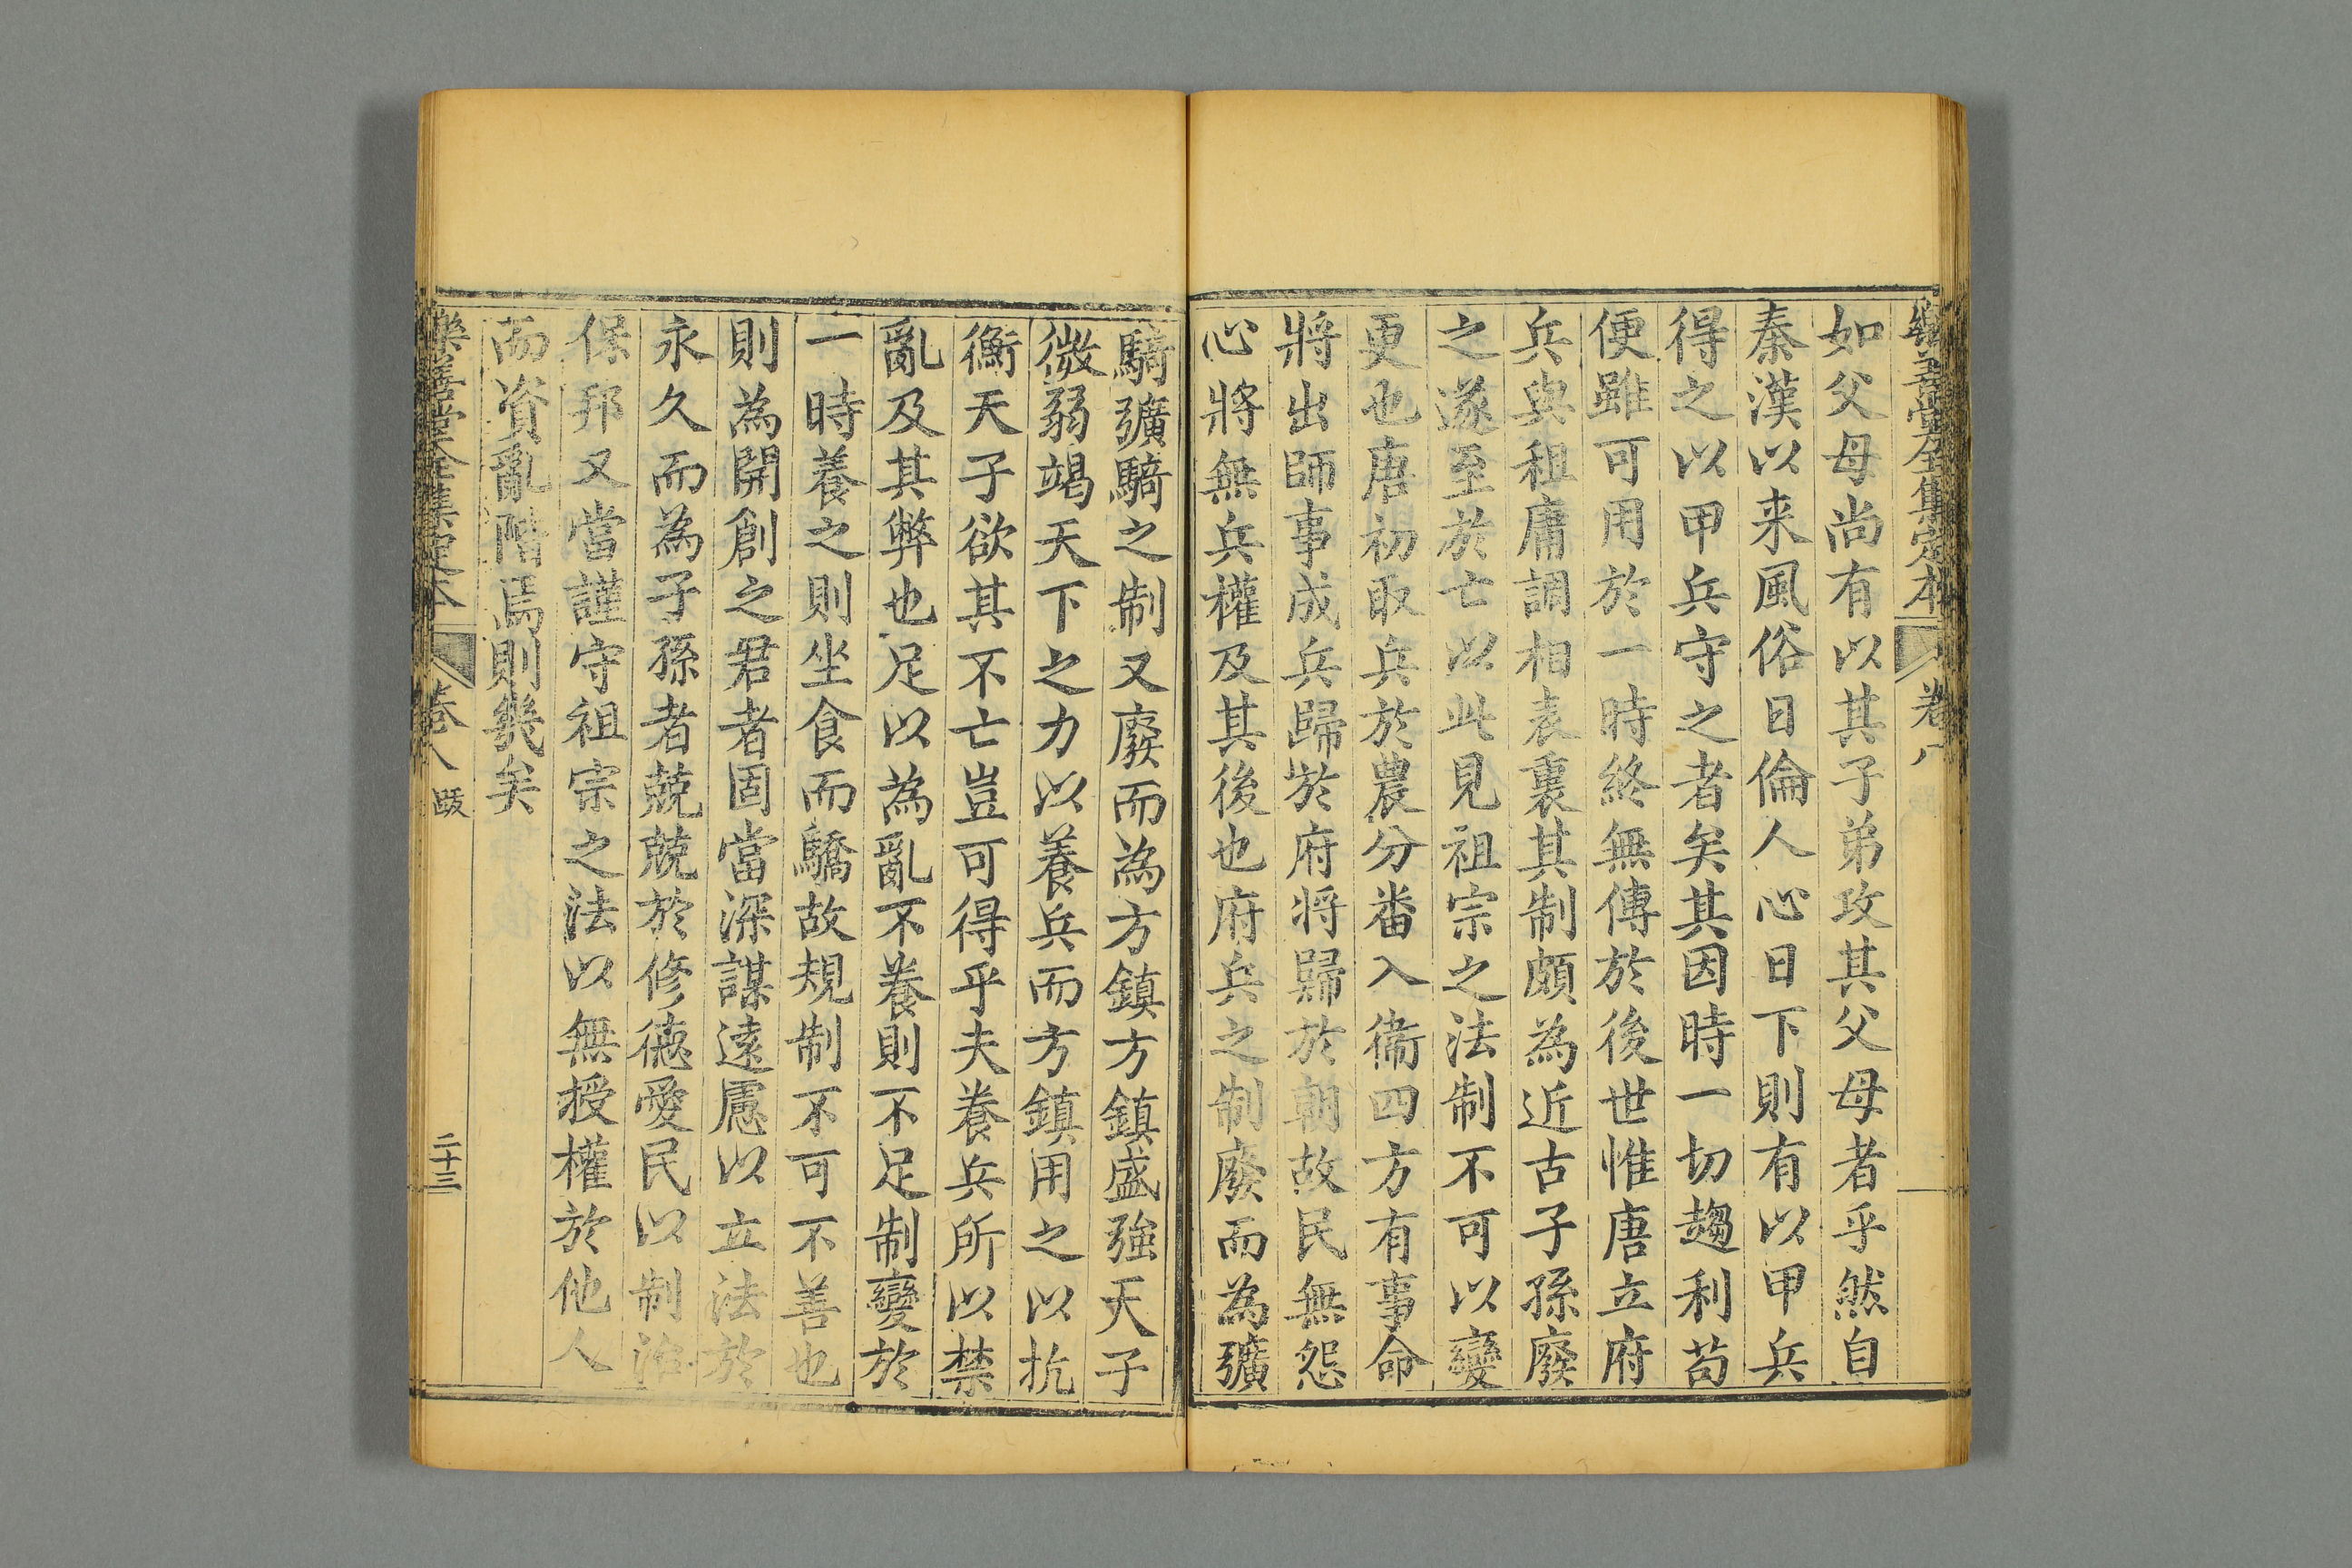 樂善堂全集定本 卷八
如父母尚有以其子弟攻其父母者乎然自
秦漢以来風俗日偷人心日下則有以甲兵
得之以甲兵守之者矣其因時一切趨利苟
便雖可用於一時終無傳於後世惟唐立府
兵與租庸調相表裏其制頗為近古子孫廢
之遂至於亡以此見祖宗之法制不可以變
更也唐初取兵於農分番入衞四方有事命
將出師事成兵歸於府将歸於朝故民無怨
心將無兵權及其後也府兵之制廢而為彍
騎彍騎之制又廢而為方鎮方鎮盛強天子
微弱竭天下之力以養兵而方鎮用之以抗
衡天子欲其不亡豈可得乎夫養兵所以禁
亂及其弊也足以為亂不養則不足制變於
一時養之則坐食而驕故規制不可不善也
則為開創之君者固當深謀遠慮以立法於
永久而為子孫者兢兢於修德愛民以制治
保邦又當謹守祖宗之法以無授權於他人
而資亂階焉則幾矣
樂善堂全集定本 卷八 跋 二十三